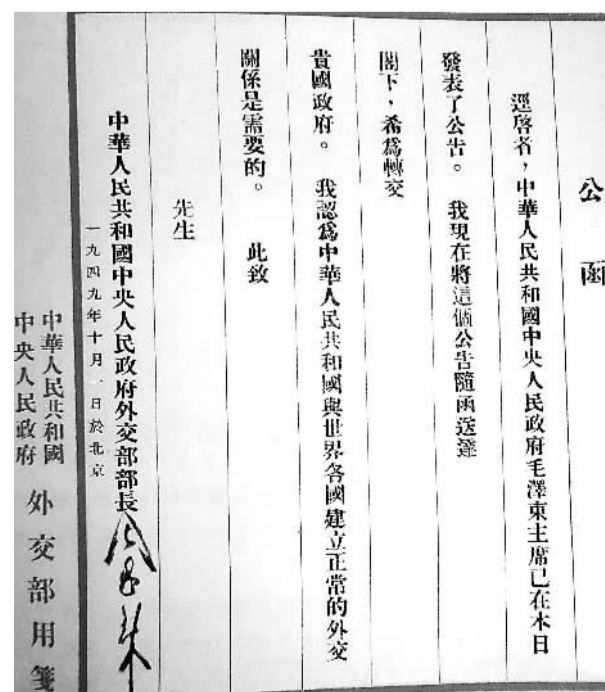 公函
逕啓者，中華人民共和國中央人民政府毛澤東主席已在本日
發表了公告。我現在將這個公告隨函送達
閣下，希爲轉交
貴國政府。我認爲中華人民共和國與世界各國建立正常的外交
關係是需要的。此致
先生
中華人民共和國中央人民政府外交部部長周恩來
一九四九年十月一日於北京
中華人民共和國
中央人民政府
外交部用箋